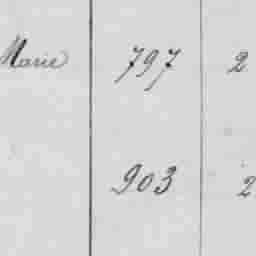 Marie 797 2
903 2